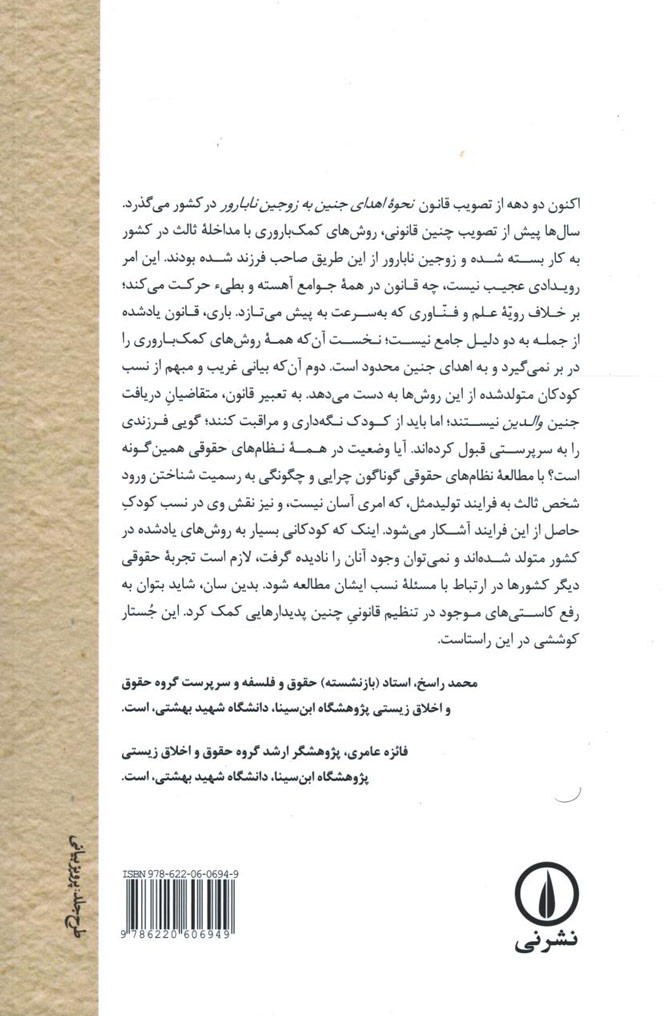 اکنون دو دهه از تصویب قانون نحوهٔ اهدای جنین به زوجین نابارور در کشور می‌گذرد.
سال‌ها پیش از تصویب چنین قانونی، روش‌های کمک‌باروری با مداخلهٔ ثالث در کشور
به کار بسته شده و زوجین نابارور از این طریق صاحب فرزند شده بودند. این امر
رویدادی عجیب نیست، چه قانون در همهٔ جوامع آهسته و بطیء حرکت می‌کند؛
بر خلاف رویّهٔ علم و فنّاوری که به‌سرعت به پیش می‌تازد. باری، قانون یادشده
از جمله به دو دلیل جامع نیست؛ نخست آن‌که همهٔ روش‌های کمک‌باروری را
در بر نمی‌گیرد و به اهدای جنین محدود است. دوم آن‌که بیانی غریب و مبهم از نسب
کودکان متولدشده از این روش‌ها به دست می‌دهد. به تعبیر قانون، متقاضیانِ دریافت
جنین والدین نیستند؛ اما باید از کودک نگه‌داری و مراقبت کنند؛ گویی فرزندی
را به سرپرستی قبول کرده‌اند. آیا وضعیت در همهٔ نظام‌های حقوقی همین‌گونه
است؟ با مطالعهٔ نظام‌های حقوقی گوناگون چرایی و چگونگی به رسمیت شناختن ورود
شخص ثالث به فرایند تولیدمثل، که امری آسان نیست، و نیز نقش وی در نسب کودکِ
حاصل از این فرایند آشکار می‌شود. اینک که کودکانی بسیار به روش‌های یادشده در
کشور متولد شده‌اند و نمی‌توان وجود آنان را نادیده گرفت، لازم است تجربهٔ حقوقی
دیگر کشورها در ارتباط با مسئلهٔ نسب ایشان مطالعه شود. بدین سان، شاید بتوان به
رفع کاستی‌های موجود در تنظیم قانونیِ چنین پدیدارهایی کمک کرد. این جُستار
کوششی در این راستاست.
محمد راسخ، استاد (بازنشسته) حقوق و فلسفه و سرپرست گروه حقوق
و اخلاق زیستی پژوهشگاه ابن‌سینا، دانشگاه شهید بهشتی، است.
فائزه عامری، پژوهشگر ارشد گروه حقوق و اخلاق زیستی
پژوهشگاه ابن‌سینا، دانشگاه شهید بهشتی، است.
طرح جلد: پرویز بیانی
ISBN 978-622-06-0694-9
9 786220 606949
نشرنی